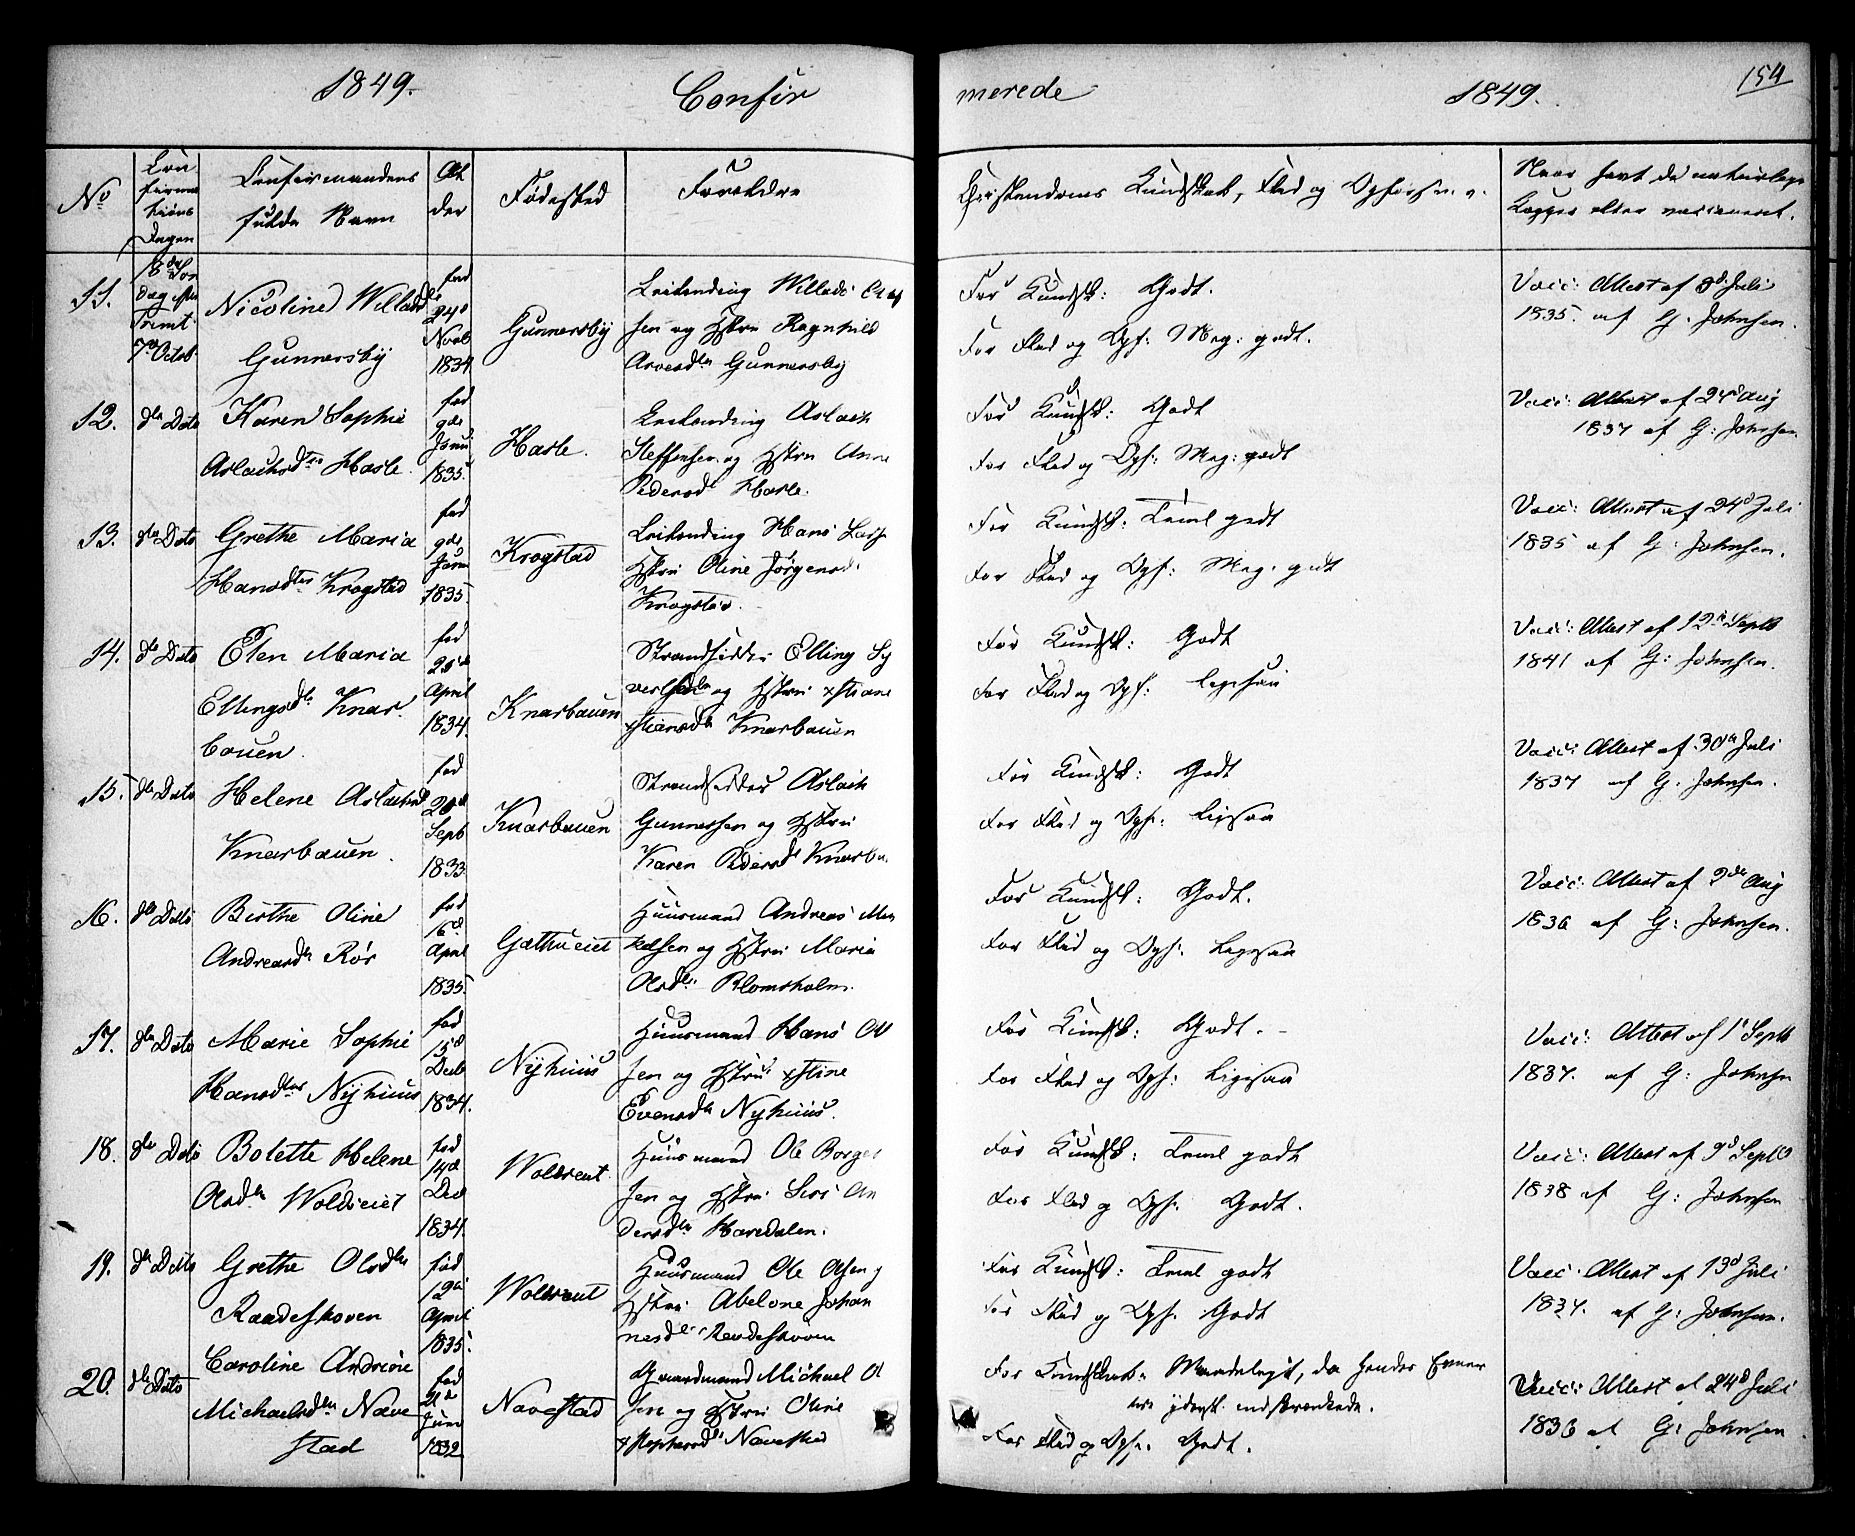 1849. Confir merede 1849. 154
No Con firma tions Dagen Confirmandens fulde Navn Al der Fødested Forældre Christendoms Kundskab, Flid og Opførsel Naar havt de naturlige Kopper eller vaccineret.
11. 18de Søn dag efter Trinit. 7de Octob.
Nicoline Willads
Gunnersby
fød 24de Novb 1834
Gunnersby
Leilending Willads
sen og Hstru Ragnhild
Arvesdtr Gunnersby
For Kundsk: Godt.
For Flid og Opf: Meg: godt.
Vacc: Attest af 3d Juli
1835 af G. Johnsen.
12. do Dato
Karen Sophie
Aslachsdtr Hasle.
fød 9de Janu 1835.
Hasle.
Leilending Aslach
Steffensen og Hstru Anne
Pedersd Hasle.
For Kundsk: Godt
For Flid og Opf: Meg: godt
Vacc: Attest af 24de Aug
1837 af G: Johnsen
13. do Dato
Grethe Maria
Hansdtr Krogstad
fød 9de Janu 1835.
Krogstad
Leilending Hans Lars
Hstru Oline Jørgensd
Krogstad.
For Kundsk: Teml godt
For Flid og Opf: Meg. godt
Vacc: Attest af 24d Juli
1835 af G: Johnsen.
14. do Dato
Elen Maria
Ellingsdtr Knar
bauen.
fød April 1834.
Knarbauen
Strandsidder Elling Sy
versen og Hstru xstiane
xstiansdtr Knarbauen
For Kundsk: Godt
For Flid og Opf: ligesaa
Vacc: Attest af 12te Septb
1841 af G: Johnsen.
15. do Dato
Helene Aslachsd
Knarbauen.
fød 20d Septb 1833
Knarbauen
Strandsidder Aslach
Gunnersen og Hstru
Karen Pedersd Knarbau
For Kundsk: Godt
For Flid og Opf: Ligesaa
Vacc: Attest af 30te Juli
1837 af G. Johnsen.
16. do Dato
Birthe Oline
Andreasdtr Rør
fød 16d April 1835.
Gathueiet
Huusmand Andreas
og Hstru Maria
Olsdtr Blomsholm.
For Kundsk: Godt.
For Flid og Opf: Ligesaa
Vacc: Attest af 2de Aug
1836 af G: Johnsen.
17. do Dato
Marie Sophie
Hansdtr Nyhuus
fød 15d Decb 1834.
Nyhuus
Huusmand Hans Ol
sen og Hstru xstine
Evensdtr Nyhuus.
For Kundsk: Godt.
For Flid og Opf: Ligesaa
Vacc: Attest af 1 Septb
1837. af G: Johnsn
18. do Dato
Bolette Helene
Olsdtr Woldveiet
fød 14de Dec 1834.
Woldveiet
Huusmand Ole Borger
sen og Hstru Siri An
dersdtr Haredalen.
For Kundsk: Teml godt
For Flid og Opf. Godt.
Vacc: Attest af 9d Septb
1838 af G: Johnsen
19. do Dato
Grethe Olsdtr
Raadeskoven
fød 12te April 1835.
Woldveiet
Huusmand Ole Olsen og
Hstru Abelone Johan
nesdtr Raadeskoven
For Kundsk: Teml godt
For Flid og Opf. Godt
Vacc. Attest af 13d Juli
1837. af G: Johnsen.
20. do Dato
Caroline Andrine
Michaelsdtr Nave
stad
fød Juni 1832
Navestad
Gaardmand Michael Ol
sen og Hstru Oline
xstophersd Navestad
For Kundskab: Maadeligt, da hendes Evner
ere indskrænkede.
For Flid og Opf. Godt.
Vacc: Attest af 24d Juli
1836 af G: Johnsen